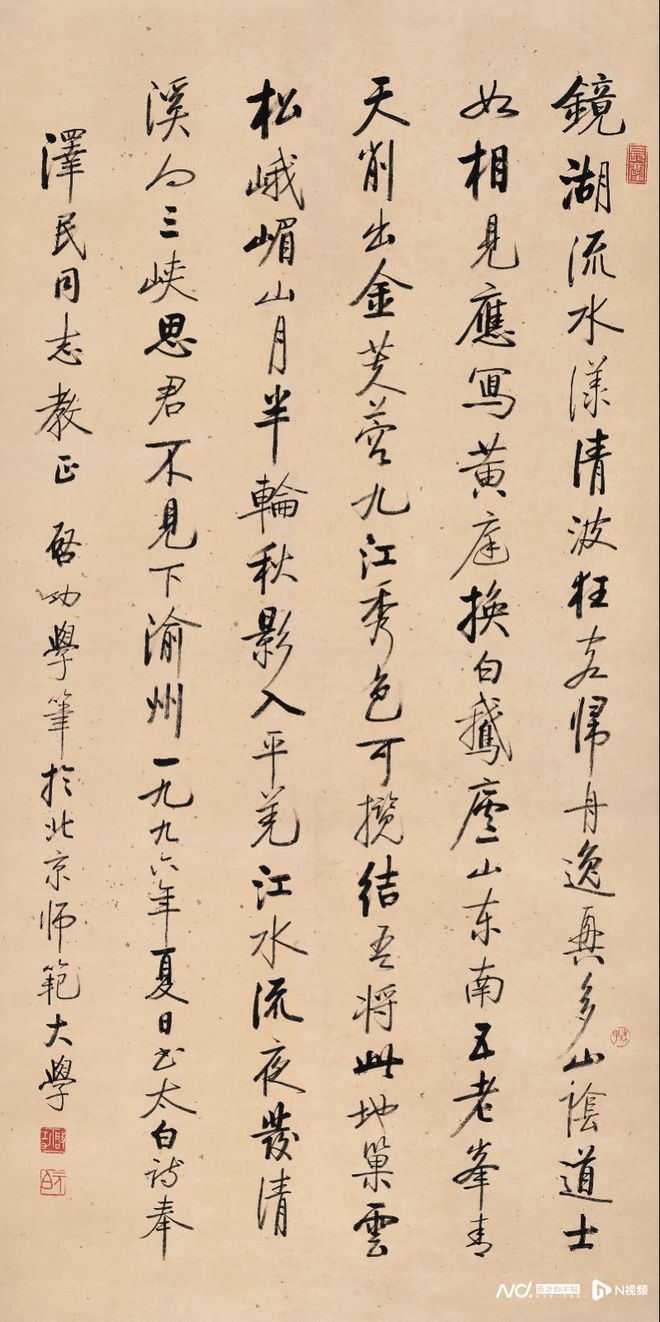 鏡湖流水漾清波狂客帰舟逸興多山陰道士
如相見應寫黃庭換白鵝廬山东南五老峯青
天削出金芙蓉九江秀色可攬結吾将此地巢雲
松峨嵋山月半輪秋影入平羌江水流夜發清
溪向三峽思君不見下渝州一九九六年夏日书太白詩奉
澤民同志教正 啓功學筆於北京师範大學
啓功
元白
南方都市报
N视频